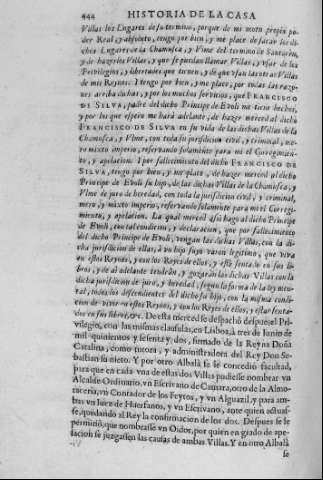 444 HISTORIA DE LA CASA
Villas los Lugares de su termino, porque de mi moto propio poder
Real, y absoluto, tengo por bien, y me place de sacar los dichos
Lugares de la Chamusca, y Vlme del termino de Santaren,
y de hazerlos Villas, y que se puedan llamar Villas, y vsar de los
Privilegios, y libertades que tienen, y de que vsan las otras Villas
de mis Reynos: I tengo por bien, y me place, por todas las razones
arriba dichas, y por los muchos servicios, que FRANCISCO
DE SILVA, padre del dicho Principe de Evoli me tiene hechos,
y por los que espero me hará adelante, de hazer merced al dicho
FRANCISCO DE SILVA en su vida de las dichas Villas de la
Chamusca, y Vlme, con toda su jurisdicion civil, y criminal, mero
mixto imperio, reservando solamente para mi el Corregimiento,
y apelacion. I por fallecimiento del dicho FRANCISCO DE
SILVA, tengo por bien, y me place, de hazer merced al dicho
Principe de Evoli su hijo, de las dichas Villas de la Chamusca, y
Vlme de juro de heredad, con toda la jurisdicion civil, y criminal,
mero, y mixto imperio, reservando solamente para mi el Corregimiento,
y apelacion. La qual merced assi hago al dicho Principe
de Evoli, con tal condicion, y declaracion, que por fallecimiento
del dicho Principe de Evoli, vengan las dichas Villas, con la dicha
jurisdicion de ellas, à vn hijo suyo varon legitimo, que viva
en estos Reynos, y con los Reyes de ellos, y esté sentado en sus libros,
y de al adelante tendràn, y gozaràn las dichas Villas con la
dicha jurisdicion de juro, y heredad, segun la forma de la ley mental,
todos los descendientes del dicho su hijo, con la misma condicion
de vivir en estos Reynos, y con los Reyes de ellos, y estar sentados
en sus libros, &c. De esta merced se despachò despues el Privilegio,
con las mismas clausulas, en Lisboa, à tres de Iunio de
mil quinientos y sesenta y dos, firmado de la Reyna Doña
Catalina, como tutora, y administradora del Rey Don Sebastian
su nieto. Y por otro Albalà se le concediò facultad,
para que en cada vna de estas dos Villas pudiesse nombrar vn
Alcalde Ordinario, vn Escrivano de Camara, otro de la Almotaceria,
vn Contador de los Feytos, y vn Alguazil, y para ambas
vn Iuez de Huerfanos, y vn Escrivano, ante quien actuasse,
quedando al Rey la confirmacion de los dos. Despues se le
permitiò, que nombrasse vn Oidor, por quien en grado de apelacion
se juzgassen las causas de ambas Villas. Y en otro Albalà
se